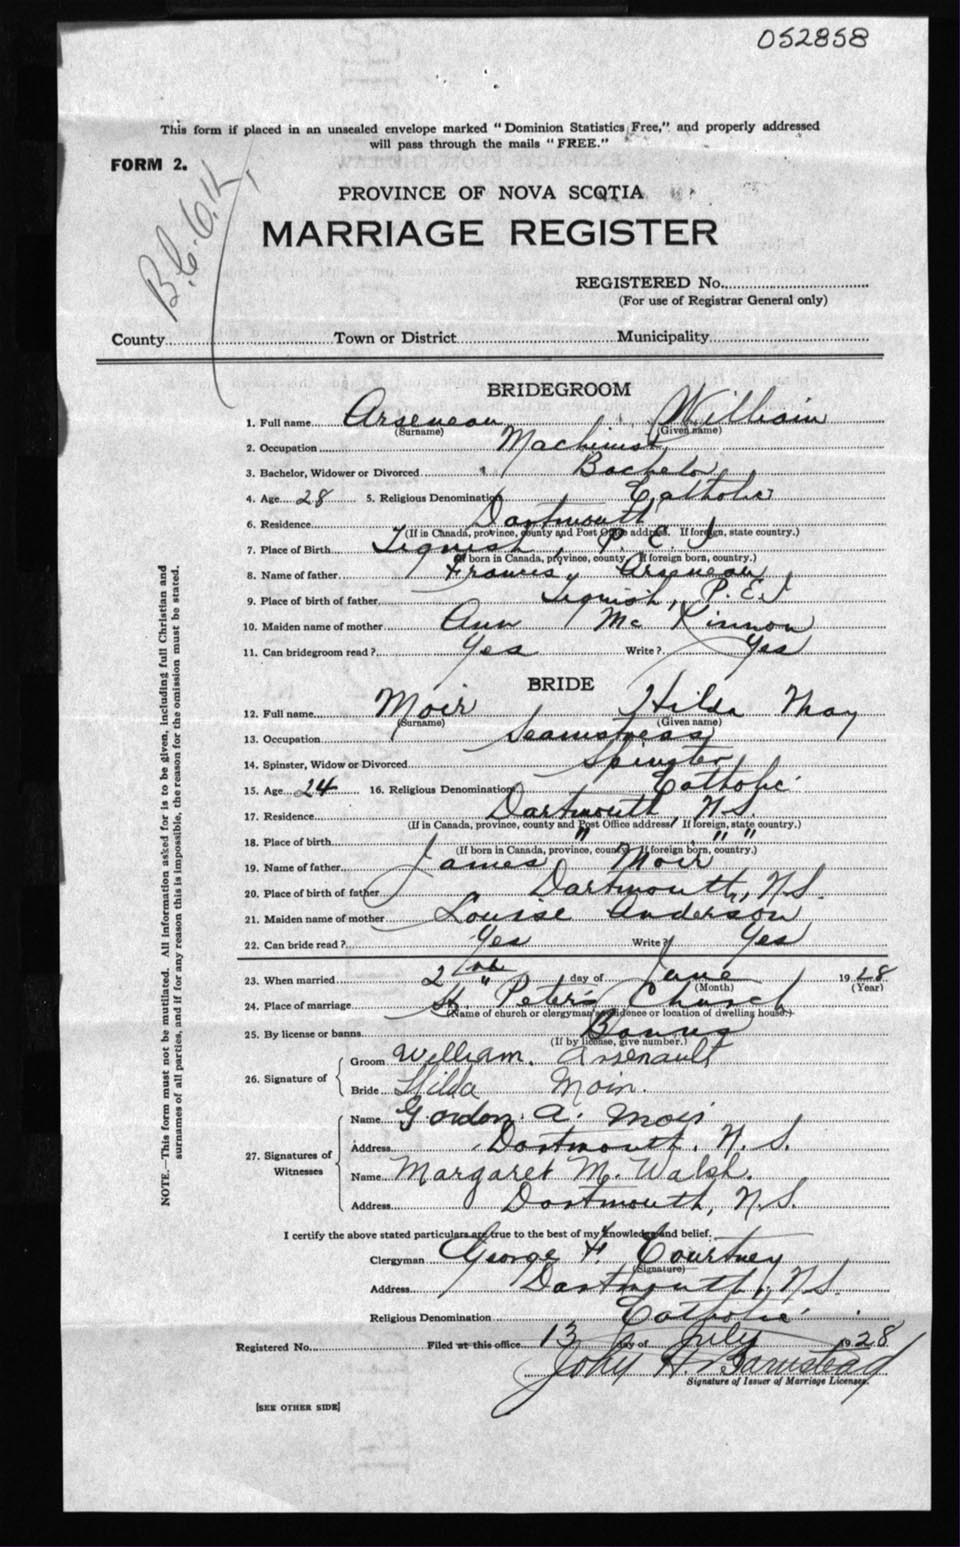 052858
This form if placed in an unsealed envelope marked "Dominion Statistics Free," and properly addressed
will pass through the mails "FREE."
FORM 2.
PROVINCE OF NOVA SCOTIA
MARRIAGE REGISTER
REGISTERED No.
(For use of Registrar General only)
County Town or District Municipality
BRIDEGROOM
1. Full name Arseneau William
(Surname) (Given name)
2. Occupation Machinist
3. Bachelor, Widower or Divorced Bachelor
4. Age 28 5. Religious Denomination Catholic
6. Residence Dartmouth
(If in Canada, province, county and Post Office address. If foreign, state country.)
7. Place of Birth Tignish, P. E. I
(If born in Canada, province, county. If foreign born, country.)
8. Name of father Francis Arseneau
9. Place of birth of father Tignish, P.E.I
10. Maiden name of mother Ann Mc Kinnon
11. Can bridegroom read? Yes Write? Yes
BRIDE
12. Full name Moir Hilda May
(Surname) (Given name)
13. Occupation Seamstress
14. Spinster, Widow or Divorced Spinster
15. Age 24 16. Religious Denomination Catholic
17. Residence Dartmouth, N.S.
(If in Canada, province, county and Post Office address. If foreign, state country.)
18. Place of birth " " "
(If born in Canada, province, county. If foreign born, country.)
19. Name of father James Moir
20. Place of birth of father Dartmouth, N.S.
21. Maiden name of mother Louise Anderson
22. Can bride read? Yes Write? Yes
23. When married 2nd day of June 1928
(Month) (Year)
24. Place of marriage St. Peter's Church
(Name of church or clergyman's residence or location of dwelling house.)
25. By license or banns Banns
(If by license, give number.)
26. Signature of
Groom William Arsenault
Bride Hilda Moir.
27. Signatures of Witnesses
Name Gordon A. Moir
Address Dartmouth, N. S.
Name Margaret M. Walsh.
Address Dartmouth, N.S.
I certify the above stated particulars are true to the best of my knowledge and belief.
Clergyman George H. Courtney
(Signature)
Address Dartmouth, N.S.
Religious Denomination Catholic
Registered No. Filed at this office 13 day of July 1928
John H. Barnstead
Signature of Issuer of Marriage Licenses.
[SEE OTHER SIDE]
NOTE.—This form must not be mutilated. All information asked for is to be given, including full Christian and
surnames of all parties, and if for any reason this is impossible, the reason for the omission must be stated.